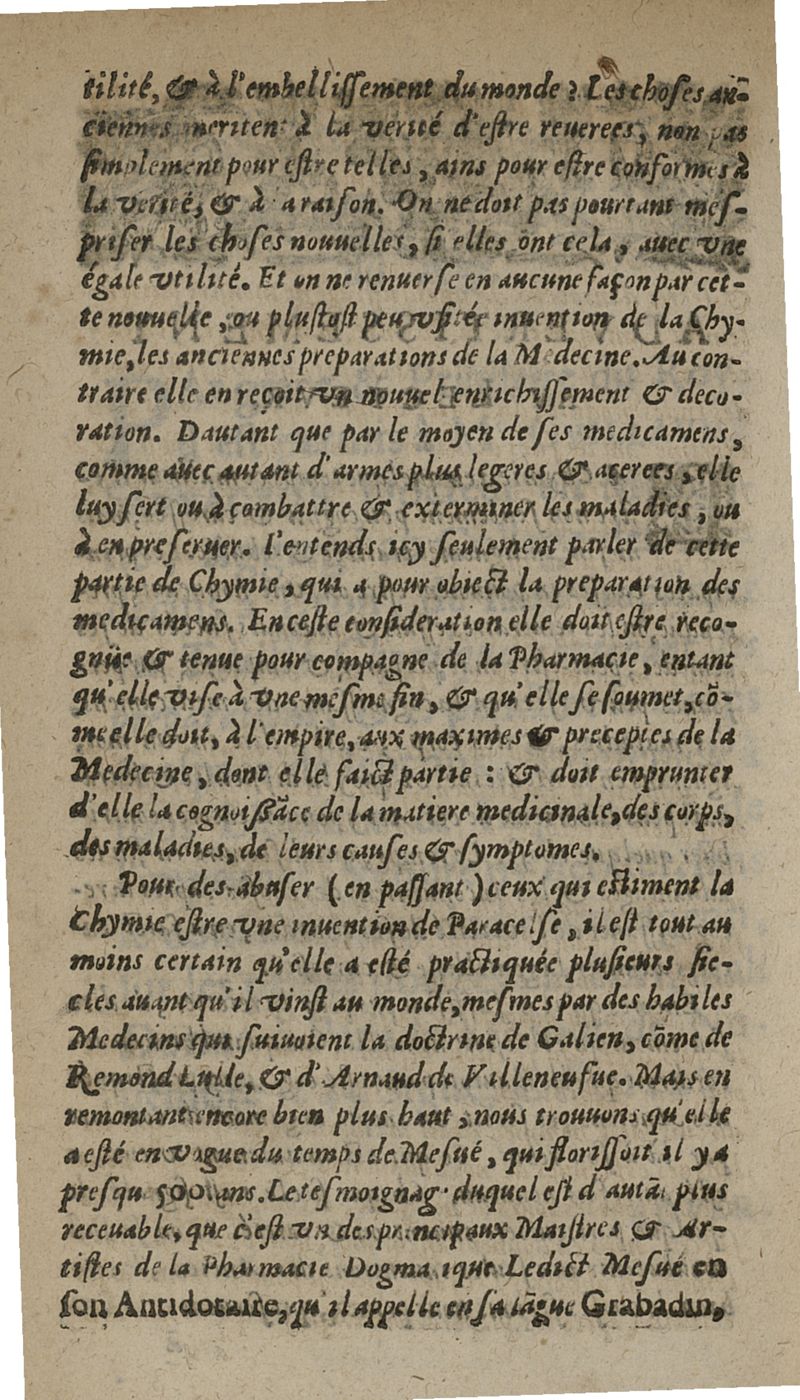 tilité, & à l'embellissement du monde? Les choses an-
ciennes meritent à la verité d'estre reuerees, non pas
simplement pour estre telles, ains pour estre conformes à
la verité, & à la raison. On ne doit pas pourtant mes-
priser les choses nouuelles, si elles ont cela, auec vne
égale vtilité. Et on ne renuerse en aucune façon par cet-
te nouuelle, ou plustost peu vsitée inuention de la Chy-
mie, les anciennes preparations de la Medecine. Au con-
traire elle en reçoit vn nouuel enrichissement & deco-
ration. Dautant que par le moyen de ses medicamens,
comme auec autant d'armes plus legeres & acerees, elle
luy sert ou à combattre & exterminer les maladies, ou
à en preseruer. I'entends icy seulement parler de cette
partie de Chymie, qui a pour obiect la preparation des
medicamens. En ceste consideration elle doit estre reco-
gnüe & tenue pour compagne de la Pharmacie, entant
qu'elle vise à vne mesme fin, & qu'elle se soumet, cõ-
me elle doit, à l'empire, aux maximes & preceptes de la
Medecine, dont elle faict partie : & doit emprunter
d'elle la cognoissãce de la matiere medicinale, des corps,
des maladies, de leurs causes & symptomes.
Pour des-abuser (en passant) ceux qui estiment la
Chymie estre vne inuention de Paracelse, il est tout au
moins certain qu'elle a esté practiquée plusieurs sie-
cles auant qu'il vinst au monde, mesmes par des habiles
Medecins qui suiuoient la doctrine de Galien, cõme de
Remond Lulle, & d'Arnaud de Villeneufue. Mais en
remontant encore bien plus haut, nous trouuons qu'elle
a esté en vogue du temps de Mesué, qui florissoit il y a
presqu 500 ans. Le tesmoignag duquel est d'autã plus
receuable, que c'est vn des principaux Maistres & Ar-
tistes de la Pharmacie Dogmatique Ledict Mesué en
son Antidotaire, qu'il appelle en sa lãgue Grabadin,